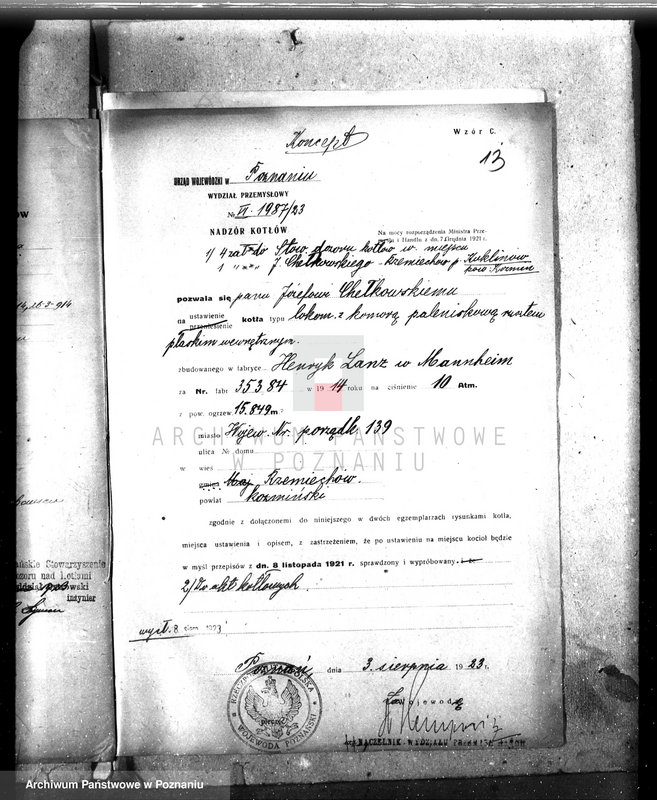 Koncept
Wzór C.
13
URZĄD WOJEWÓDZKI w Poznaniu
WYDZIAŁ PRZEMYSŁOWY
№ VI. 1987/23
NADZÓR KOTŁÓW
Na mocy rozporządzenia Ministra Prze-
mysłu i Handlu z dn. 7 Grudnia 1921 r.
1/ 4 zał. do Stow. dozoru kotłów w. miejscu
1 " " " J. Chełkowskiego Rzemiechow p. Kuklinów
pow Koźmin
pozwala się panu Józefowi Chełkowskiemu
na ustawienie
przeniesienie kotła typu lokom. z komorą paleniskową rusztem
płaskim wewnętrznym.
zbudowanego w fabryce Henryk Lanz w Mannheim
za Nr. fabr 35384 w 1914 roku na ciśnienie 10 Atm.
z pow. ogrzew. 15.849 m²
miasto Wojew. Nr. porządk. 139
ulica № domu
w wieś
gmina Maj. Rzemiechow.
powiat Koźmiński
zgodnie z dołączonemi do niniejszego w dwóch egzemplarzach rysunkami kotła,
miejsca ustawienia i opisem, z zastrzeżeniem, że po ustawieniu na miejscu kocioł będzie
w myśl przepisów z dn. 8 listopada 1921 r. sprawdzony i wypróbowany.
2/ Do akt kotłowych
wysł. 8 1923
Poznań, dnia 3. sierpnia 1923 r.
Za Wojewodę
NACZELNIK WYDZIAŁU
RZECZYPOSPOLITA POLSKA
WOJEWODA POZNAŃSKI
pieczęć
Stowarzyszenie
dozoru nad kotłami
inżynier
ARCHIWUM PAŃSTWOWE
W POZNANIU
Archiwum Państwowe w Poznaniu